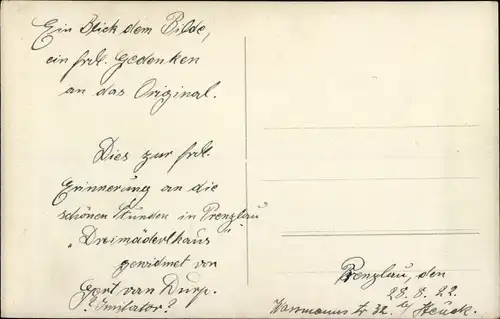 Ein Blick dem Bilde,
ein frdl. Gedenken
an das Original.
Dies zur frdl.
Erinnerung an die
schönen Stunden in Prenzlau
"Dreimäderlhaus"
gewidmet von
Gert van Durp.
? Imitator ?
Prenzlau, den
28.8.22.
str 32. b/ Heuck.